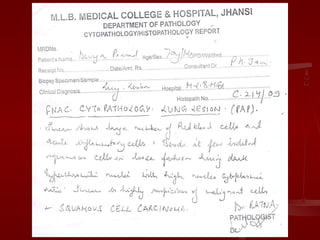 M.L.B. MEDICAL COLLEGE & HOSPITAL, JHANSI
DEPARTMENT OF PATHOLOGY
CYTOPATHOLOGY/HISTOPATHOLOGY REPORT
MRDNo.
Patient's Name Age/Sex
Receipt No. Date/Amt. Rs. Consultant Dr P.K. Jain
Biopsy Specimen/Sample
Clinical Diagnosis Lung Lesion Hospital
Histopath No. C-214/09
FNAC CYTOPATHOLOGY. LUNG LESION (PAP).
Smear shows large number of Red blood cells and
acute inflammatory cells. Beside it few isolated
squamous cells in loose fashion having dark
hyperchromatic nuclei with high nucleo cytoplasmic
ratio. Smear is highly suspicious of malignant cells
SQUAMOUS CELL CARCINOMA.
Dr RATNA
PATHOLOGIST